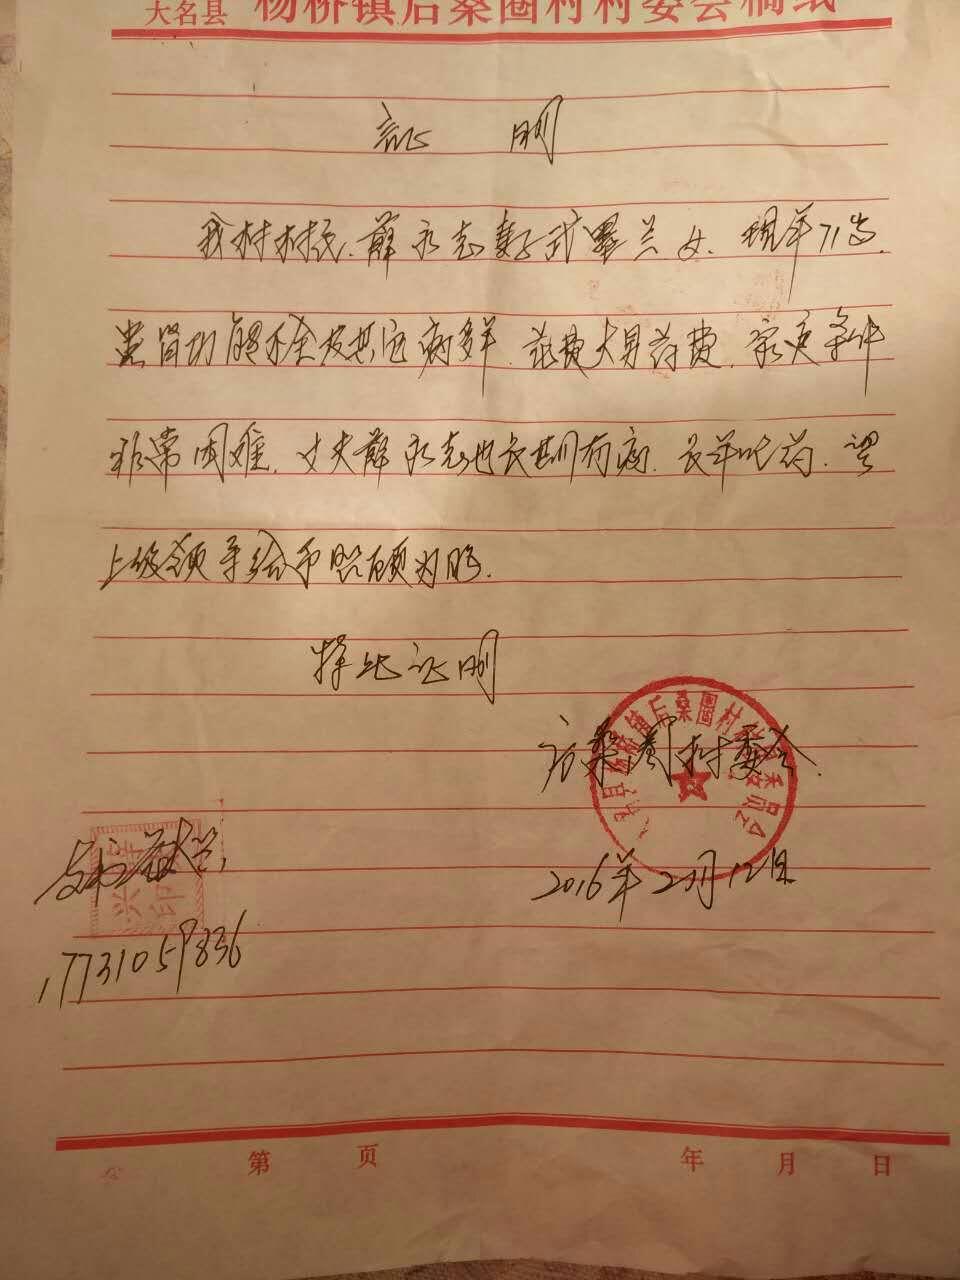 大名县 杨桥镇后桑圈村村委会稿纸
证 明
我村村民.薛永志妻子武墨兰 女.现年71岁.
患肾功能不全及其它病多样.花费大量药费.家庭条件
非常困难.丈夫薛永志也长期有病.长年吃药.望
上级领导给予照顾为盼.
特此证明
后桑圈村委会.
2016年2月12日
支书
17731059836
第 页 年 月 日